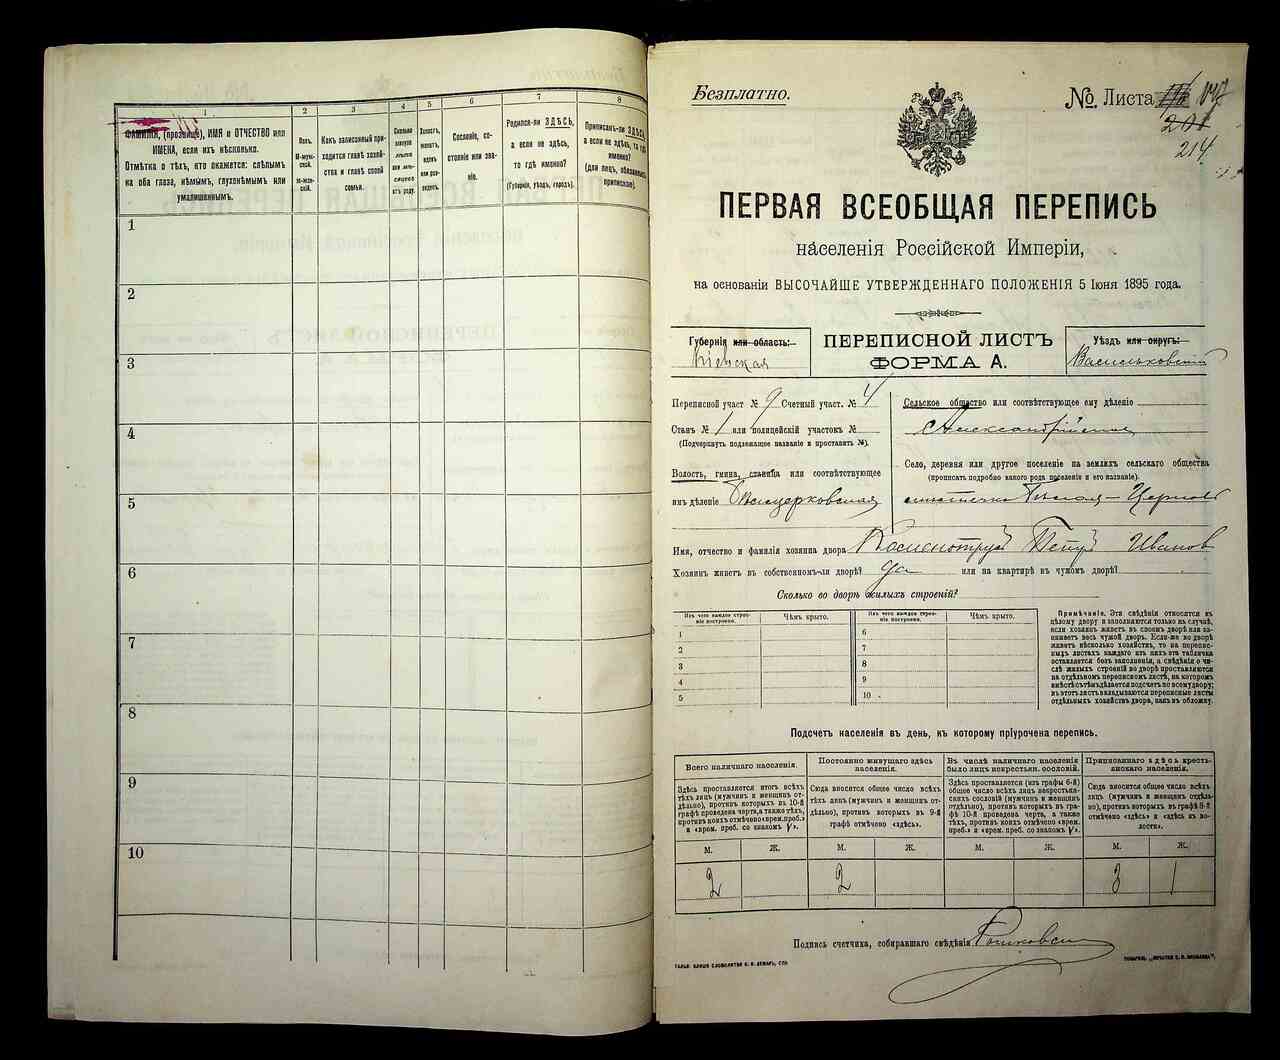 1
ФАМИЛІЯ, (прозвище), ИМЯ и ОТЧЕСТВО или
ИМЕНА, если ихъ нѣсколько.
Отмѣтка о тѣхъ, кто окажется: слѣпымъ
на оба глаза, нѣмымъ, глухонѣмымъ или
умалишеннымъ.
2
Полъ.
М-муж-
ской.
Ж-жен-
скій.
3
Какъ записанный при-
ходится главѣ хозяй-
ства и главѣ своей
семьи.
4
Сколько
минуло
лѣтъ
или мѣ-
сяцевъ
отъ роду.
5
Холостъ,
женатъ,
вдовъ
или раз-
веденъ.
6
Сословіе, со-
стояніе или зва-
ніе.
7
Родился-ли ЗДѢСЬ,
а если не здѣсь,
то гдѣ именно?
(Губернія, уѣздъ, городъ).
8
Приписанъ-ли ЗДѢСЬ,
а если не здѣсь, то гдѣ
именно?
(для лицъ, обязанныхъ
припискою).
1
2
3
4
5
6
7
8
9
10
Безплатно.
№ Листа
201
214
ПЕРВАЯ ВСЕОБЩАЯ ПЕРЕПИСЬ
населенія Россійской Имперіи,
на основаніи ВЫСОЧАЙШЕ УТВЕРЖДЕННАГО ПОЛОЖЕНІЯ 5 Іюня 1895 года.
Губернія или область:
Кіевская
ПЕРЕПИСНОЙ ЛИСТЪ
ФОРМА А.
Уѣздъ или округъ:
Васильковскій
Переписной участ. № 9 Счетный участ. № 4
Станъ № 1 или полицейскій участокъ №
(Подчеркнуть подлежащее названіе и проставить №).
Волость, гмина, станица или соотвѣтствующее
имъ дѣленіе Бѣлоцерковская
Сельское общество или соотвѣтствующее ему дѣленіе
Александрійское
Село, деревня или другое поселеніе на земляхъ сельскаго общества
(прописать подробно какого рода поселеніе и его названіе).
мѣстечко Бѣлая-Церковь
Имя, отчество и фамилія хозяина двора Петръ Иванов
Хозяинъ живетъ въ собственномъ-ли дворѣ? да или на квартирѣ въ чужомъ дворѣ?
Сколько во дворѣ жилыхъ строеній?
Изъ чего каждое строе-
ніе построено.
Чѣмъ крыто.
Изъ чего каждое строе-
ніе построено.
Чѣмъ крыто.
1
2
3
4
5
6
7
8
9
10
Примѣчаніе. Эти свѣдѣнія относятся къ
цѣлому двору и заполняются только на случай,
если хозяинъ живетъ въ своемъ дворѣ или за-
нимаетъ весь чужой дворъ. Если-же во дворѣ
живетъ нѣсколько хозяйствъ, то на перепис-
ныхъ листахъ каждаго изъ нихъ эта табличка
оставляется безъ заполненія, а свѣдѣнія о чи-
слѣ жилыхъ строеній во дворѣ проставляются
на отдѣльномъ переписномъ листѣ, на которомъ
вмѣстѣ съ тѣмъ дѣлается подсчетъ по всему двору;
въ этотъ листъ вкладываются переписные листы
отдѣльныхъ хозяйствъ двора, какъ въ обложку.
Подсчетъ населенія въ день, къ которому пріурочена перепись.
Всего наличнаго населенія.
Здѣсь проставляется итогъ всѣхъ
тѣхъ лицъ (мужчинъ и женщинъ от-
дѣльно), противъ которыхъ въ 10-й
графѣ проведена черта, а также тѣхъ,
противъ коихъ отмѣчено «врем. преб.»
и «врем. преб. со знакомъ V».
Постоянно живущаго здѣсь
населенія.
Сюда вносится общее число всѣхъ
тѣхъ лицъ (мужчинъ и женщинъ от-
дѣльно), противъ которыхъ въ 9-й
графѣ отмѣчено «здѣсь».
Въ числѣ наличнаго населенія
было лицъ некрестьян. сословій.
Здѣсь проставляется (изъ графы 6-й)
общее число всѣхъ лицъ некрестьян-
скихъ сословій (мужчинъ и женщинъ
отдѣльно), противъ которыхъ въ гра-
фѣ 10-й проведена черта, а также
тѣхъ, противъ коихъ отмѣчено «врем.
преб.» и «врем. преб. со знакомъ V».
Приписаннаго здѣсь кресть-
янскаго населенія.
Сюда вносится общее число всѣхъ
лицъ (мужчинъ и женщинъ отдѣль-
но), противъ которыхъ въ графѣ 8-й
отмѣчено «здѣсь» и «здѣсь въ во-
лости».
М. Ж. М. Ж. М. Ж. М. Ж.
2 2 3 1
Подпись счетчика, собиравшаго свѣдѣнія